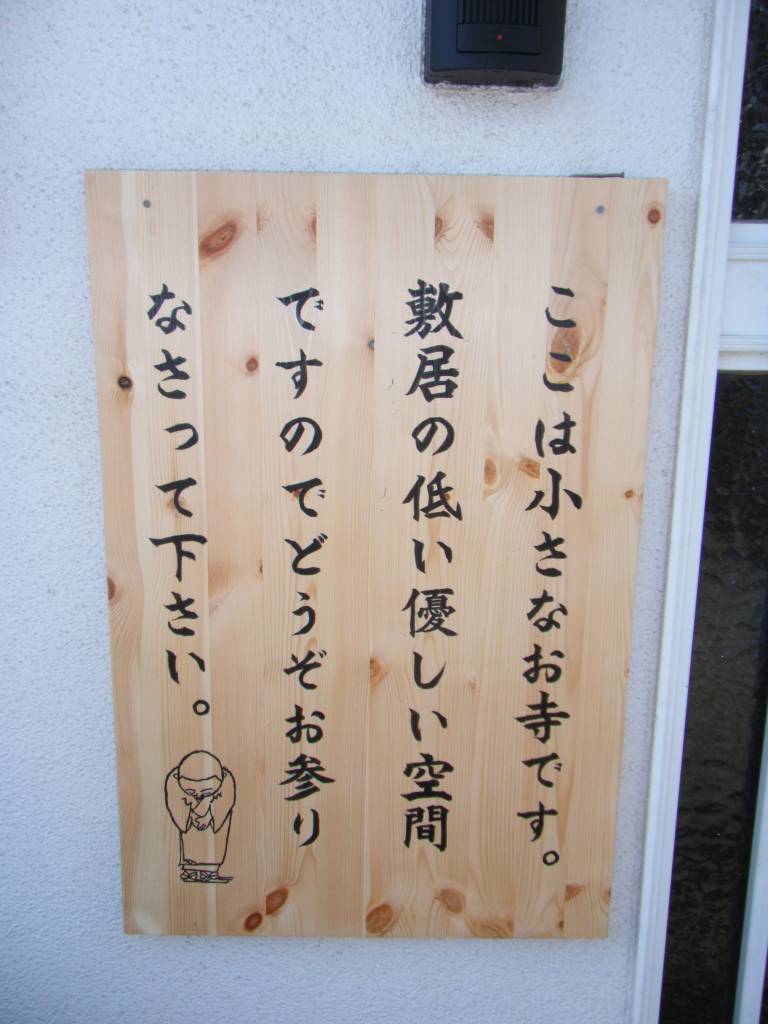 ここは小さなお寺です。
敷居の低い優しい空間
ですのでどうぞお参り
なさって下さい。